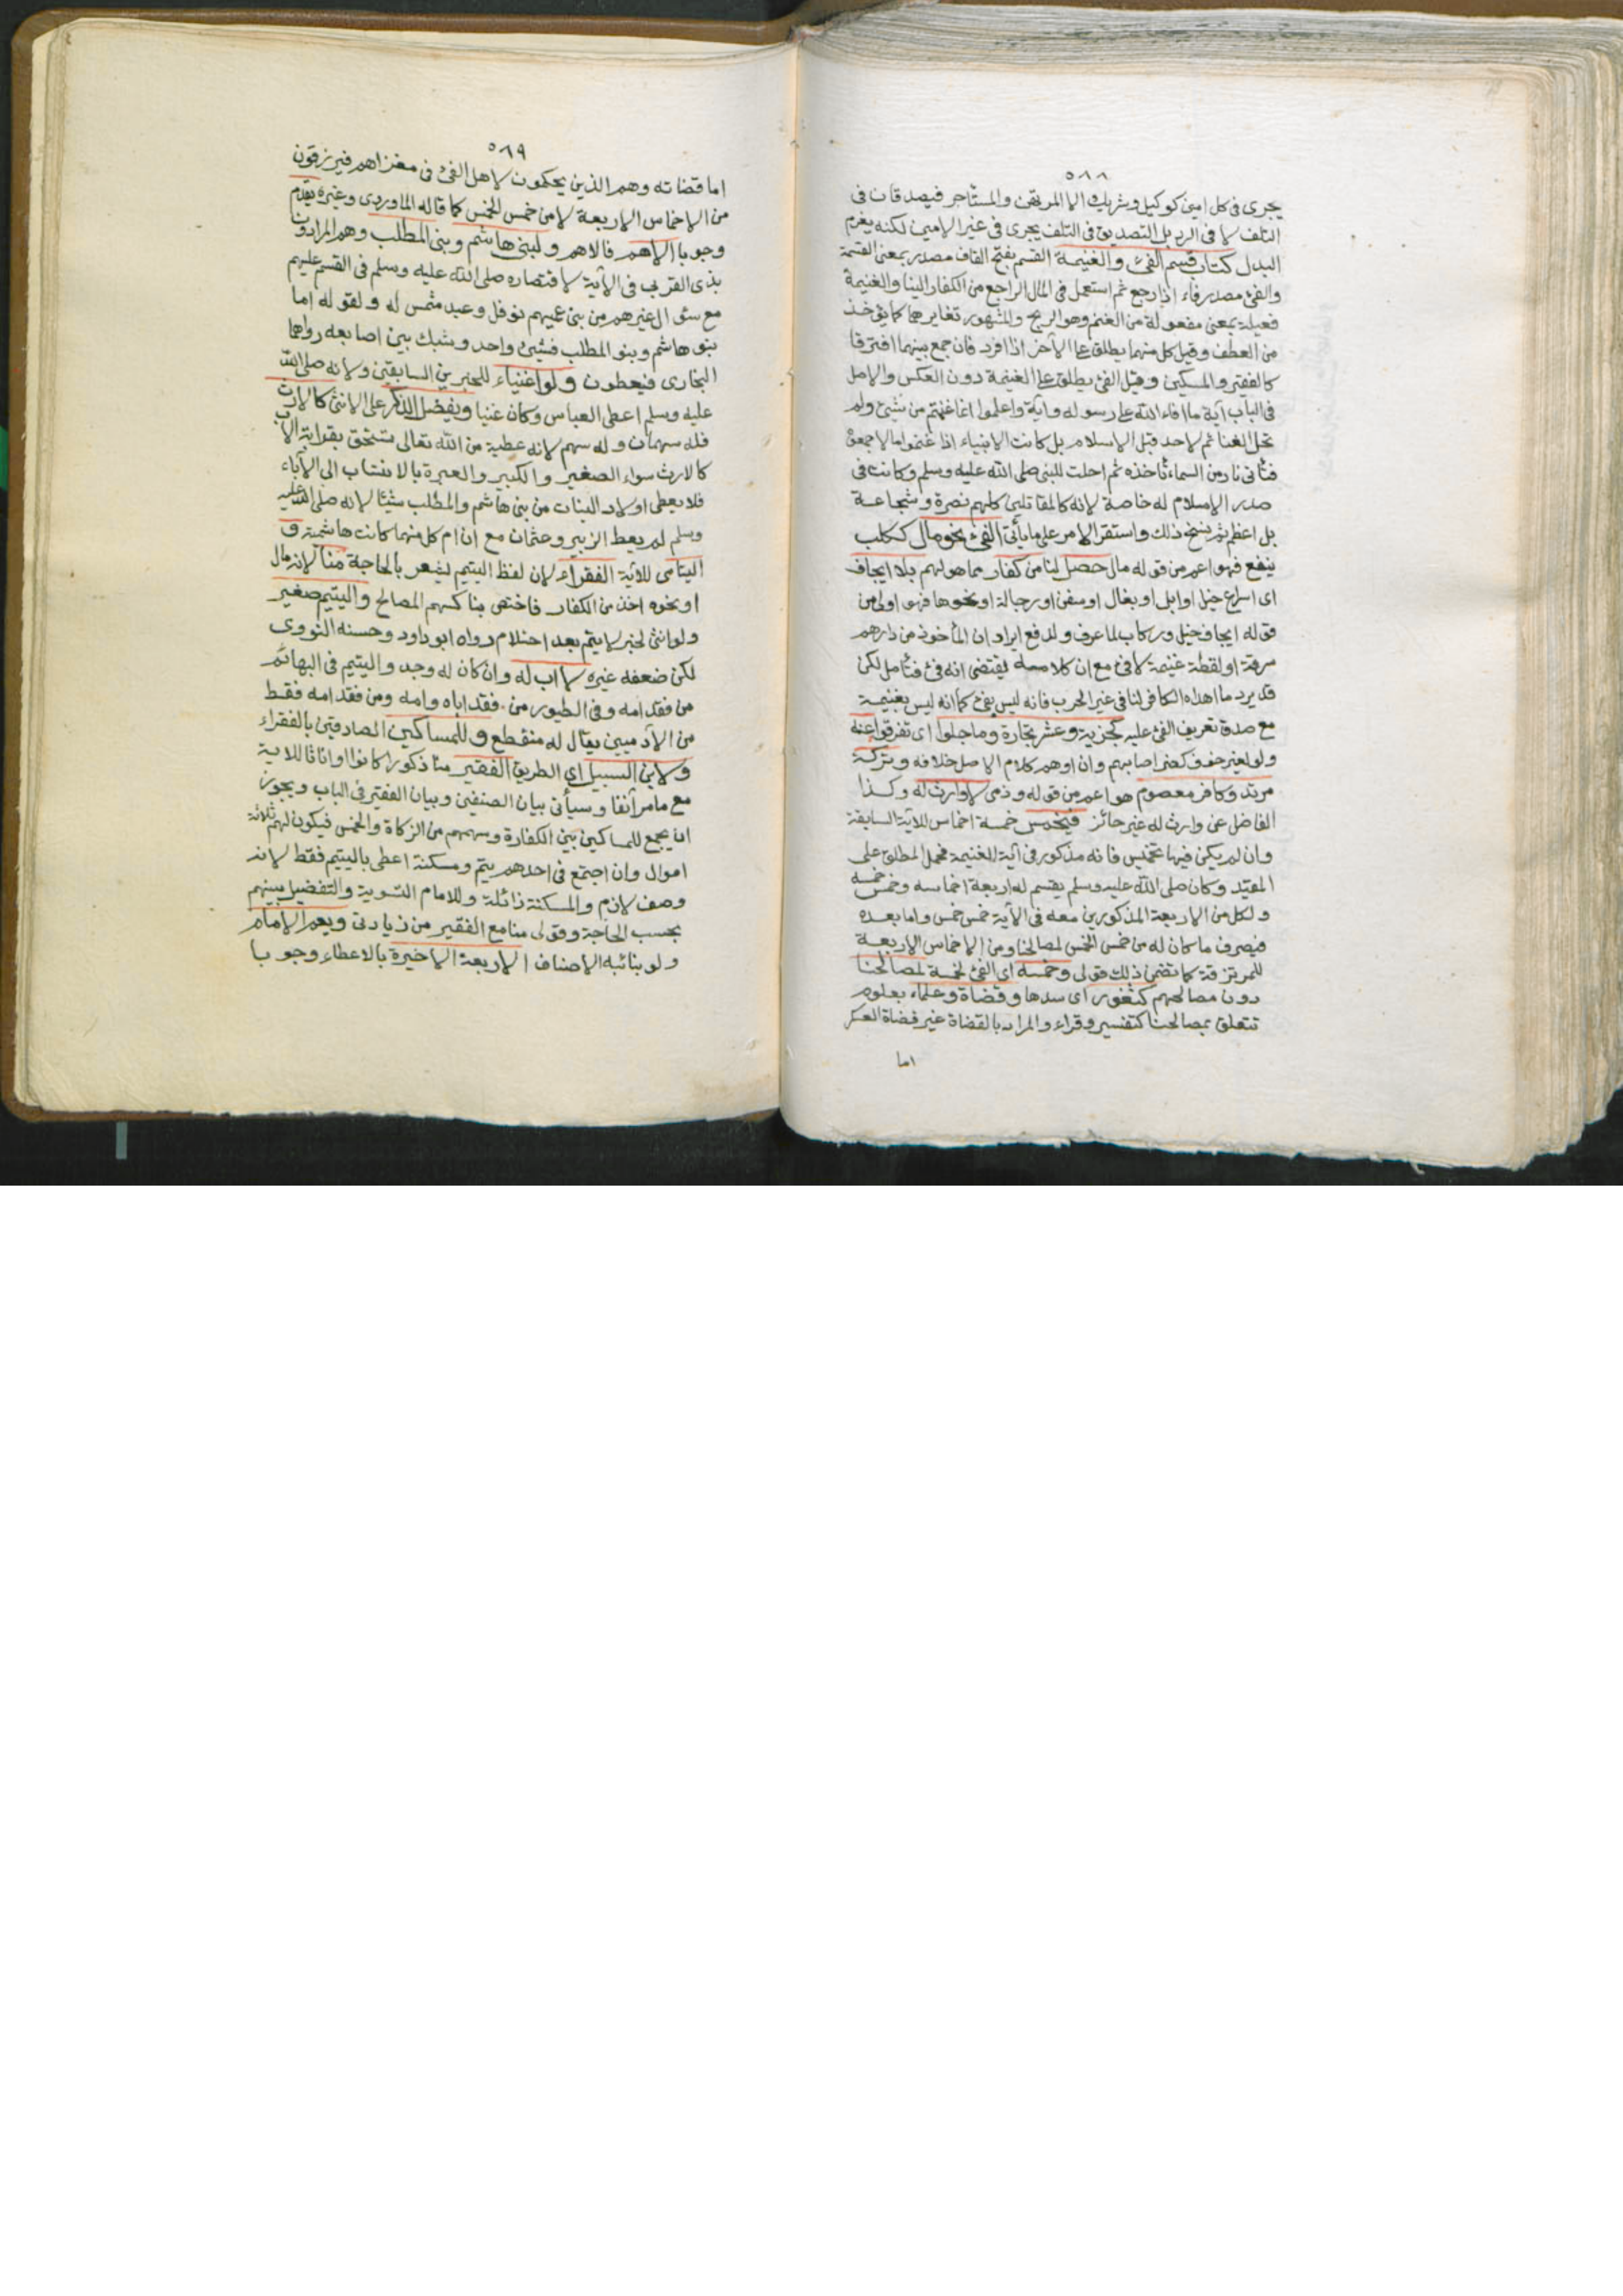 ٥٨٨
يجرى فى كل امين كوكيل وشريك الا المرتهن والمستأجر فيصدقان فى
التلف لا فى الرد بل التصديق فى التلف يجرى فى غير الامين لكنه يغرم
البدل كتاب قسم الفئ والغنيمة القسم بفتح القاف مصدر بمعنى القسمة
والفئ مصدر فاء اذا رجع ثم استعمل فى المال الراجع من الكفار الينا والغنيمة
فعيلة بمعنى مفعولة من الغنم وهو الربح والمشهور تغايرهما كما يؤخذ
من العطف وقيل كل منهما يطلق على الآخر اذا افرد فان جمع بينهما افترقا
كالفقير والمسكين وقيل الفئ يطلق على الغنيمة دون العكس والاصل
فى الباب آية ما افاء الله على رسوله وآية واعلموا انما غنمتم من شئ ولم
تحل الغنائم لاحد قبل الاسلام بل كانت الانبياء اذا غنموا مالا جمعوه
فتأتى نار من السماء تأخذه ثم احلت للنبى صلى الله عليه وسلم وكانت فى
صدر الاسلام له خاصة لانه كالمقاتلين كلهم نصرة وشجاعة
بل اعظم ثم نسخ ذلك واستقر الامر على ما يأتى الفئ نحو مال ككلب
ينفع فهو اعم من قوله مال حصل لنا من كفار مما هو لهم بلا ايجاف
اى اسراع خيل او ابل او بغال او سفن او رجالة او نحوها فهو اولى من
قوله ايجاف خيل وركاب لما عرف ولدفع ايراد ان المأخوذ من دارهم
سرقة او لقطة غنيمة لا فئ مع ان كلامه يقتضى انه فئ فتأمل لكن
قد يرد ما اهداه الكافر لنا فى غير الحرب فانه ليس بفئ كما انه ليس بغنيمة
مع صدق تعريف الفئ عليه كجزية وعشر تجارة وما جلوا اى تفرقوا عنه
ولو لغير خوف كضر اصابهم وان اوهم كلام الاصل خلافه وتركة
مرتد وكافر معصوم هو اعم من قوله وذمى لا وارث له وكذا
الفاضل عن وارث له غير حائز فيخمس خمسة اخماس للآية السابقة
وان لم يكن فيها تخميس فانه مذكور فى آية الغنيمة فحمل المطلق على
المقيد وكان صلى الله عليه وسلم يقسم له اربعة اخماسه وخمس خمسه
ولكل من الاربعة المذكورين معه فى الآية خمس خمس واما بعده
فيصرف ما كان له من خمس الخمس لمصالحنا ومن الاخماس الاربعة
للمرتزقة كما تضمن ذلك قولى وخمسه اى الفئ لخمسة لمصالحنا
دون مصالحهم كثغور اى سدها وقضاة وعلماء بعلوم
تتعلق بمصالحنا كتفسير وقراء والمراد بالقضاة غير قضاة العسكر
اما
٥٨٩
اما قضاته وهم الذين يحكمون لاهل الفئ فى مغزاهم فيرزقون
من الاخماس الاربعة لا من خمس الخمس كما قاله الماوردى وغيره يقدم
وجوبا الاهم فالاهم ولبنى هاشم وبنى المطلب وهم المرادون
بذى القربى فى الآية لاقتصاره صلى الله عليه وسلم فى القسم عليهم
مع سؤال غيرهم من بنى عميهم نوفل وعبد شمس له ولقوله اما
بنو هاشم وبنو المطلب فشئ واحد وشبك بين اصابعه رواهما
البخارى فيعطون ولو اغنياء للخبرين السابقين ولانه صلى الله
عليه وسلم اعطى العباس وكان غنيا ويفضل الذكر على الانثى كالارث
فله سهمان ولها سهم لانه عطية من الله تعالى يستحق بقرابة الاب
كالارث سواء الصغير والكبير والعبرة بالانتساب الى الآباء
فلا يعطى اولاد البنات من بنى هاشم والمطلب شيئا لانه صلى الله عليه
وسلم لم يعط الزبير وعثمان مع ان ام كل منهما كانت هاشمية و
اليتامى للآية الفقراء لان لفظ اليتيم يشعر بالحاجة منا لانه مال
او نحوه اخذ من الكفار فاختص بنا كسهم المصالح واليتيم صغير
ولو انثى لخبر لا يتم بعد احتلام رواه ابو داود وحسنه النووى
لكن ضعفه غيره لا اب له وان كان له وجد واليتيم فى البهائم
من فقد امه وفى الطيور من فقد اباه وامه ومن فقد امه فقط
من الآدميين يقال له منقطع وللمساكين الصادقين بالفقراء
ولابن السبيل اى الطريق الفقير منا ذكورا كانوا او اناثا للآية
مع ما مر آنفا وسيأتى بيان الصنفين وبيان الفقير فى الباب ويجوز
ان يجمع للمساكين بين الكفارة وسهمهم من الزكاة والخمس فيكون لهم ثلاثة
اموال وان اجتمع فى احدهم يتم ومسكنة اعطى باليتيم فقط لانه
وصف لازم والمسكنة زائلة وللامام التسوية والتفضيل بينهم
بحسب الحاجة وقولى منا مع الفقير من زيادتى ويعم الامام
ولو بنائبه الاصناف الاربعة الاخيرة بالاعطاء وجوبا